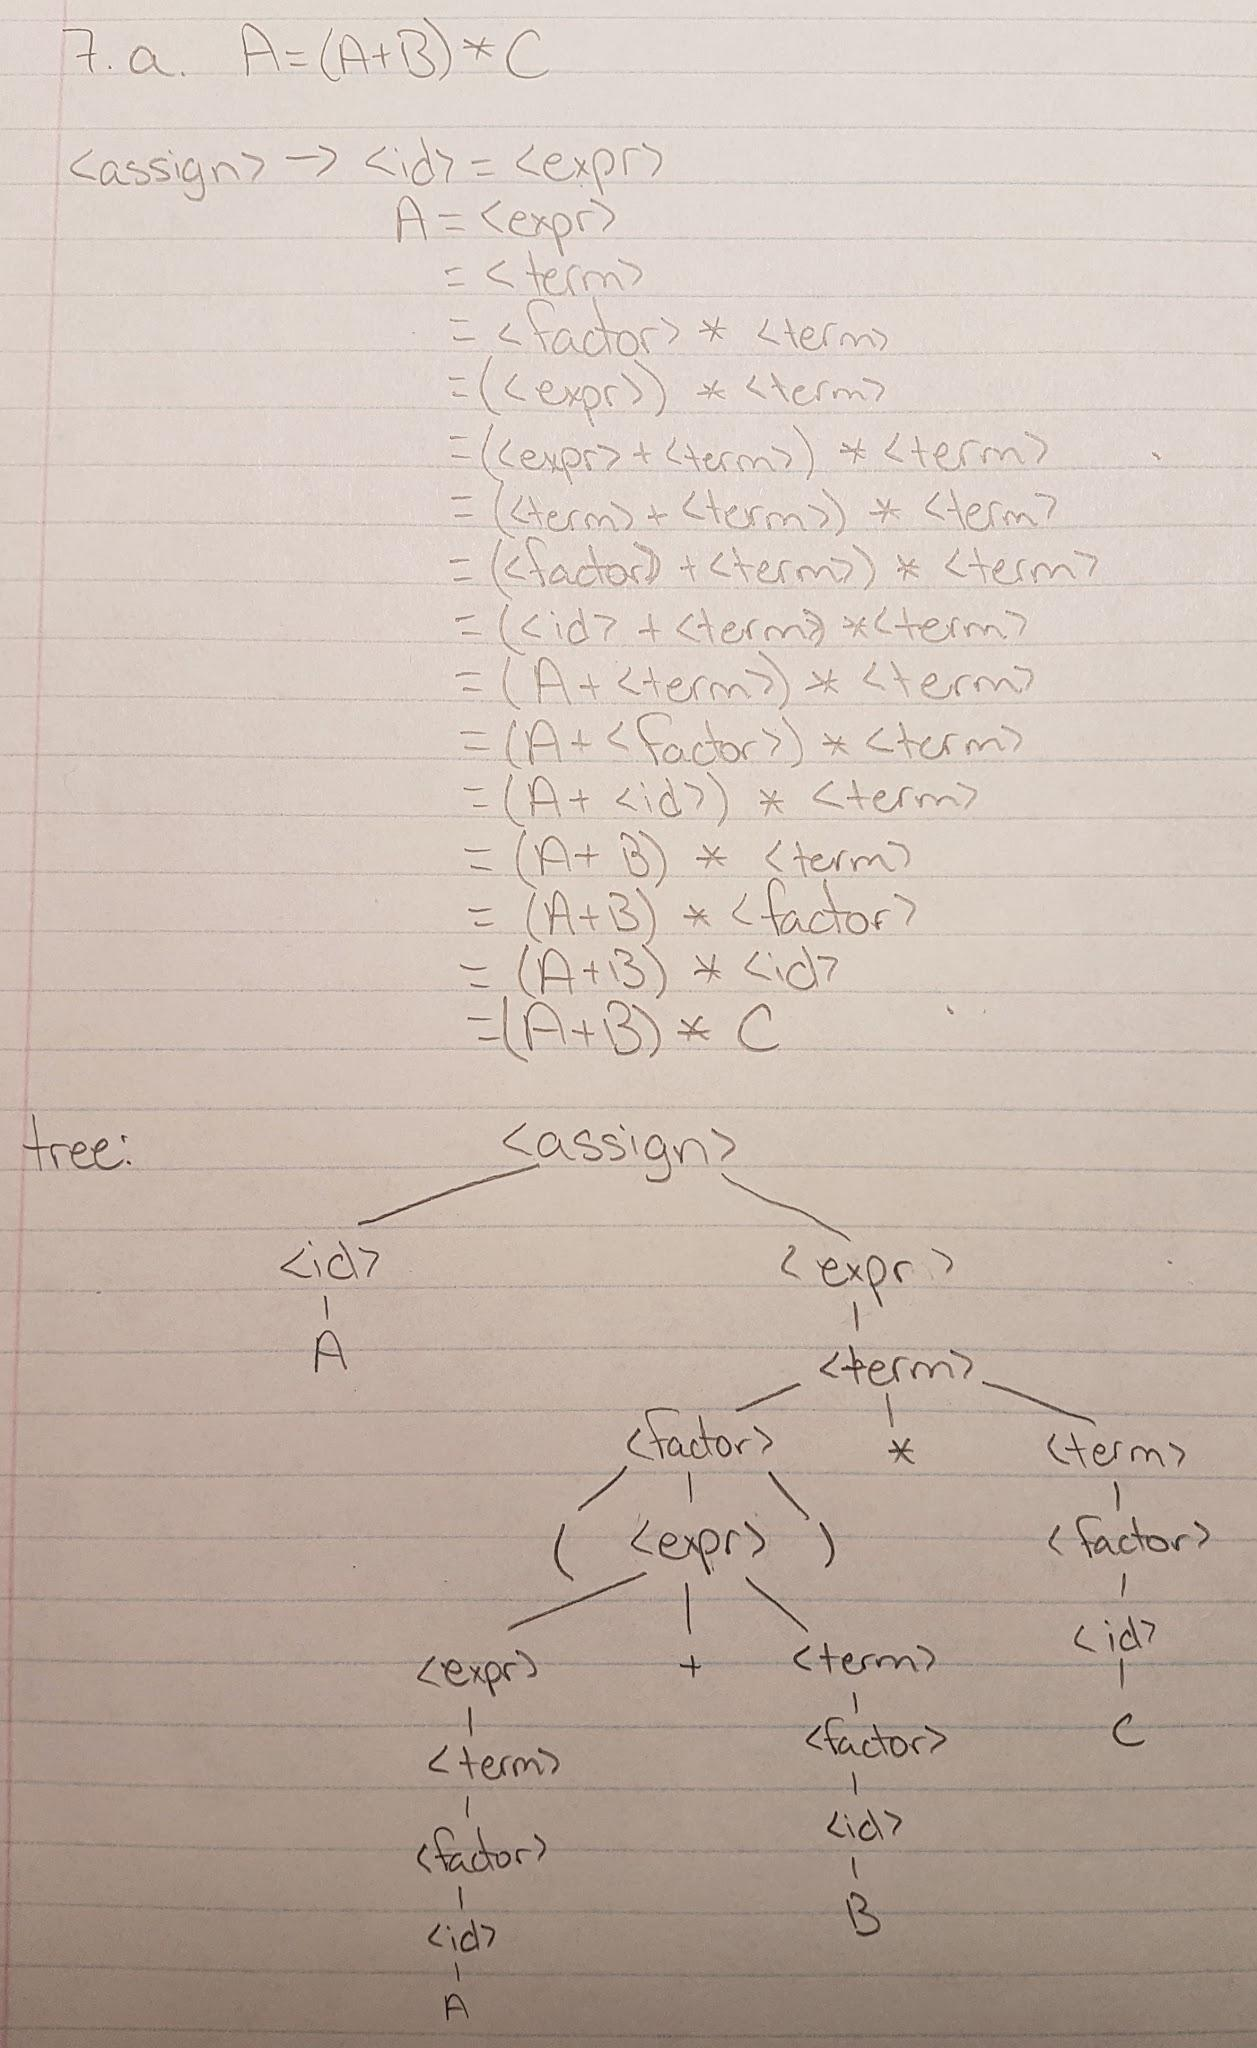 7. a. A=(A+B)*C
<assign> -> <id> = <expr>
A = <expr>
= <term>
= <factor> * <term>
= (<expr>) * <term>
= (<expr> + <term>) * <term>
= (<term> + <term>) * <term>
= (<factor> + <term>) * <term>
= (<id> + <term>) * <term>
= (A + <term>) * <term>
= (A + <factor>) * <term>
= (A + <id>) * <term>
= (A + B) * <term>
= (A+B) * <factor>
= (A+B) * <id>
= (A+B) * C
tree: <assign>
<id> <expr>
A <term>
<factor> * <term>
( <expr> ) <factor>
<expr> + <term> <id>
<term> <factor> C
<factor> <id>
<id> B
A